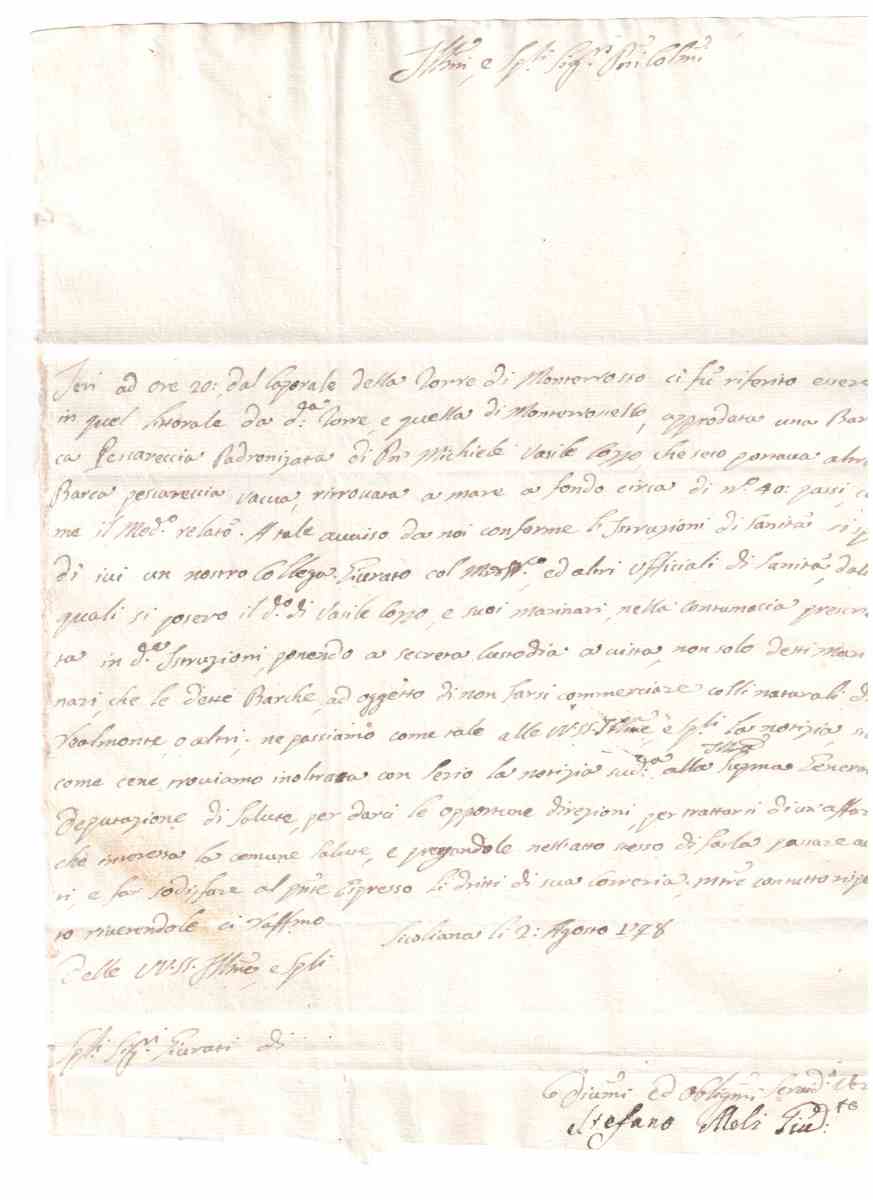 Illmi, e Spli Sigri Pni Colmi
Ieri ad ore 20:, dal Caporale della Torre di Monterosso ci fu riferito essere
in quel littorale da da: Torre, e quella di Monterossello, approdata una Bar
ca Pescareccia Padronizata di Pn Michiele Vasile Coppo che seco portava altra
Barca pescareccia vacua, ritrovata a mare a fondo circa di no. 40: passi, co
me il Medo. relatò. A tale avviso da noi conforme le Istruzioni di Sanità si
di ivi un nostro Collega Giurato col ed altri Ufficiali di Sanità, dalli
quali si posero il do: di Vasile Coppo, e suoi marinari, nella Contumacia prescrit
ta in de: Istruzioni, ponendo a secreta Custodia a vista, non solo detti Mari
nari, che le dette Barche, ad oggetto di non farsi commerciare colli naturali di
Realmonte, o altri; ne passiamo come tale alle VV. SS. Illme, e Spli la notizia, si
come cene troviamo inoltrata con serio la notizia suda: alla Suprma Illma General
Deputazione di Salute, per darci le opportune direzioni, per trattarsi d'un affare
che interessa la comune salute, e pregandole nell'atto stesso di farla passare av
ti, e far sodisfare al pnte Espresso li dritti di sua Correria; mtre con tutto rispet
to riverendole ci raffmo
Siculiana li 2: Agosto 1798
Delle VV. SS. Illme, e Spli
Spli: Sigri: Giurati di
Divmi ed Obligmi Servid:
Stefano Meli Giud:to